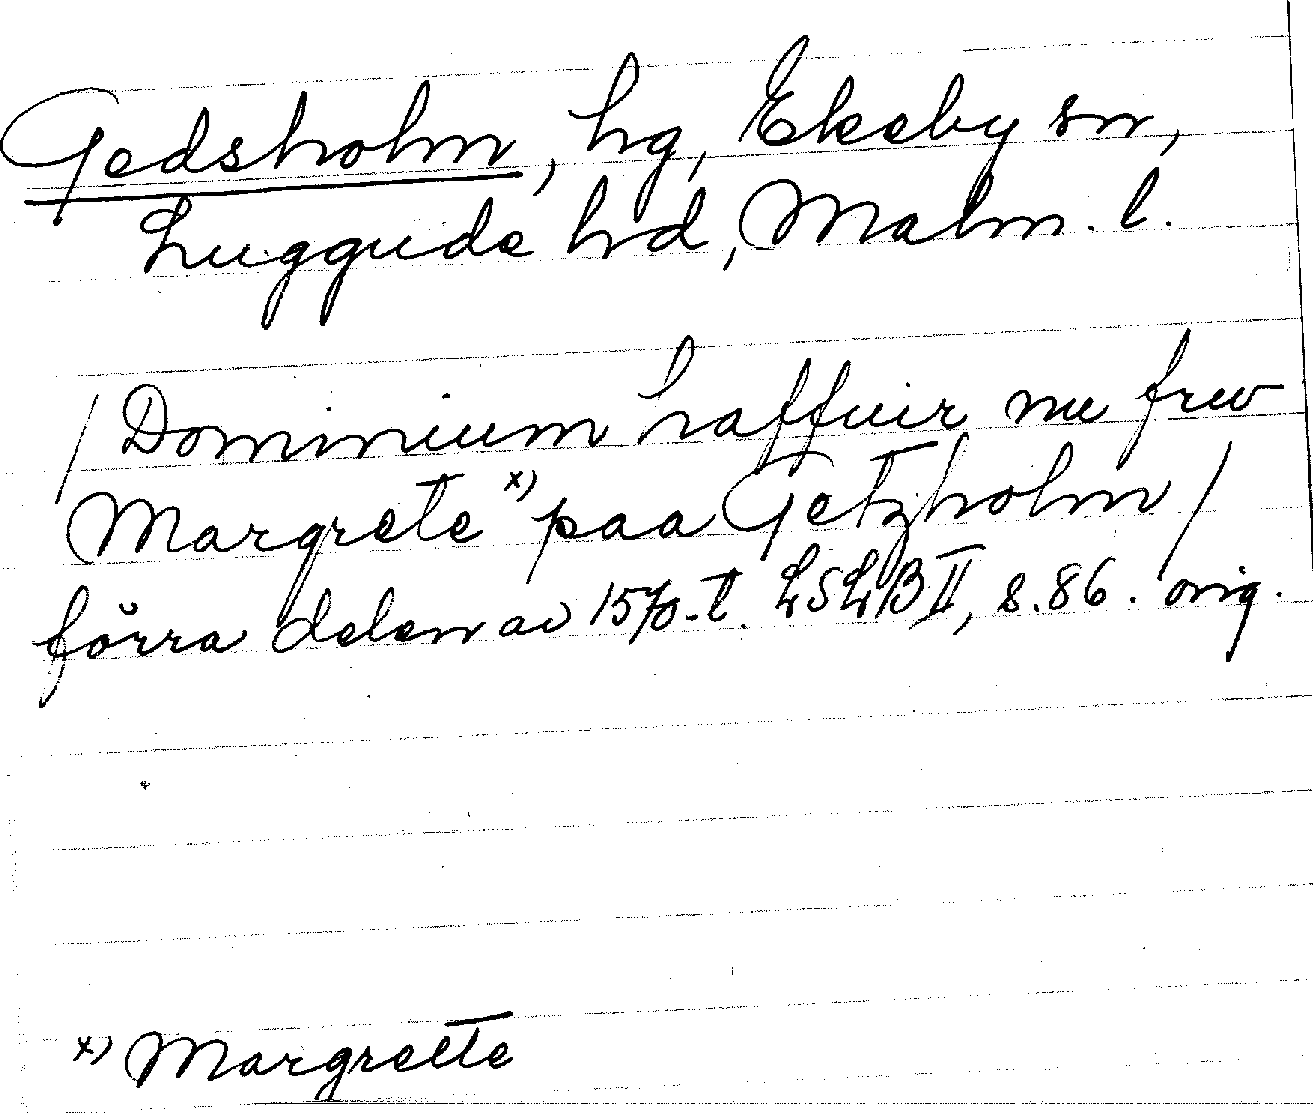 Gedsholm, hg, Ekeby sn,
Luggude hd, Malm. l.
/ Dominium haffuir nu frw
Margrete x) paa Getzholm /
förra delen av 1570-t. LSLB II, s. 86. orig.
x) Margrette